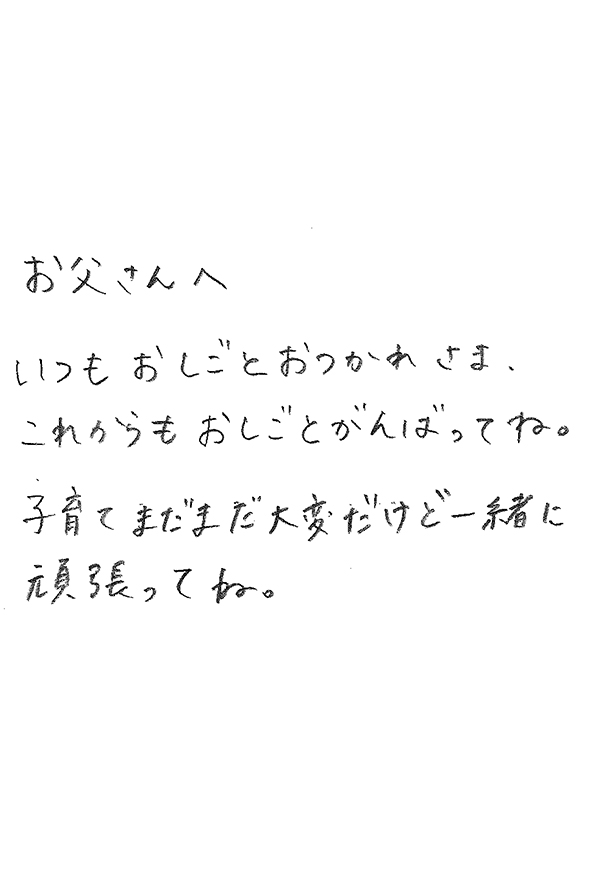 お父さんへ
いつもおしごとおつかれさま、
これからもおしごとがんばってね。
子育てまだまだ大変だけど一緒に
頑張ってね。